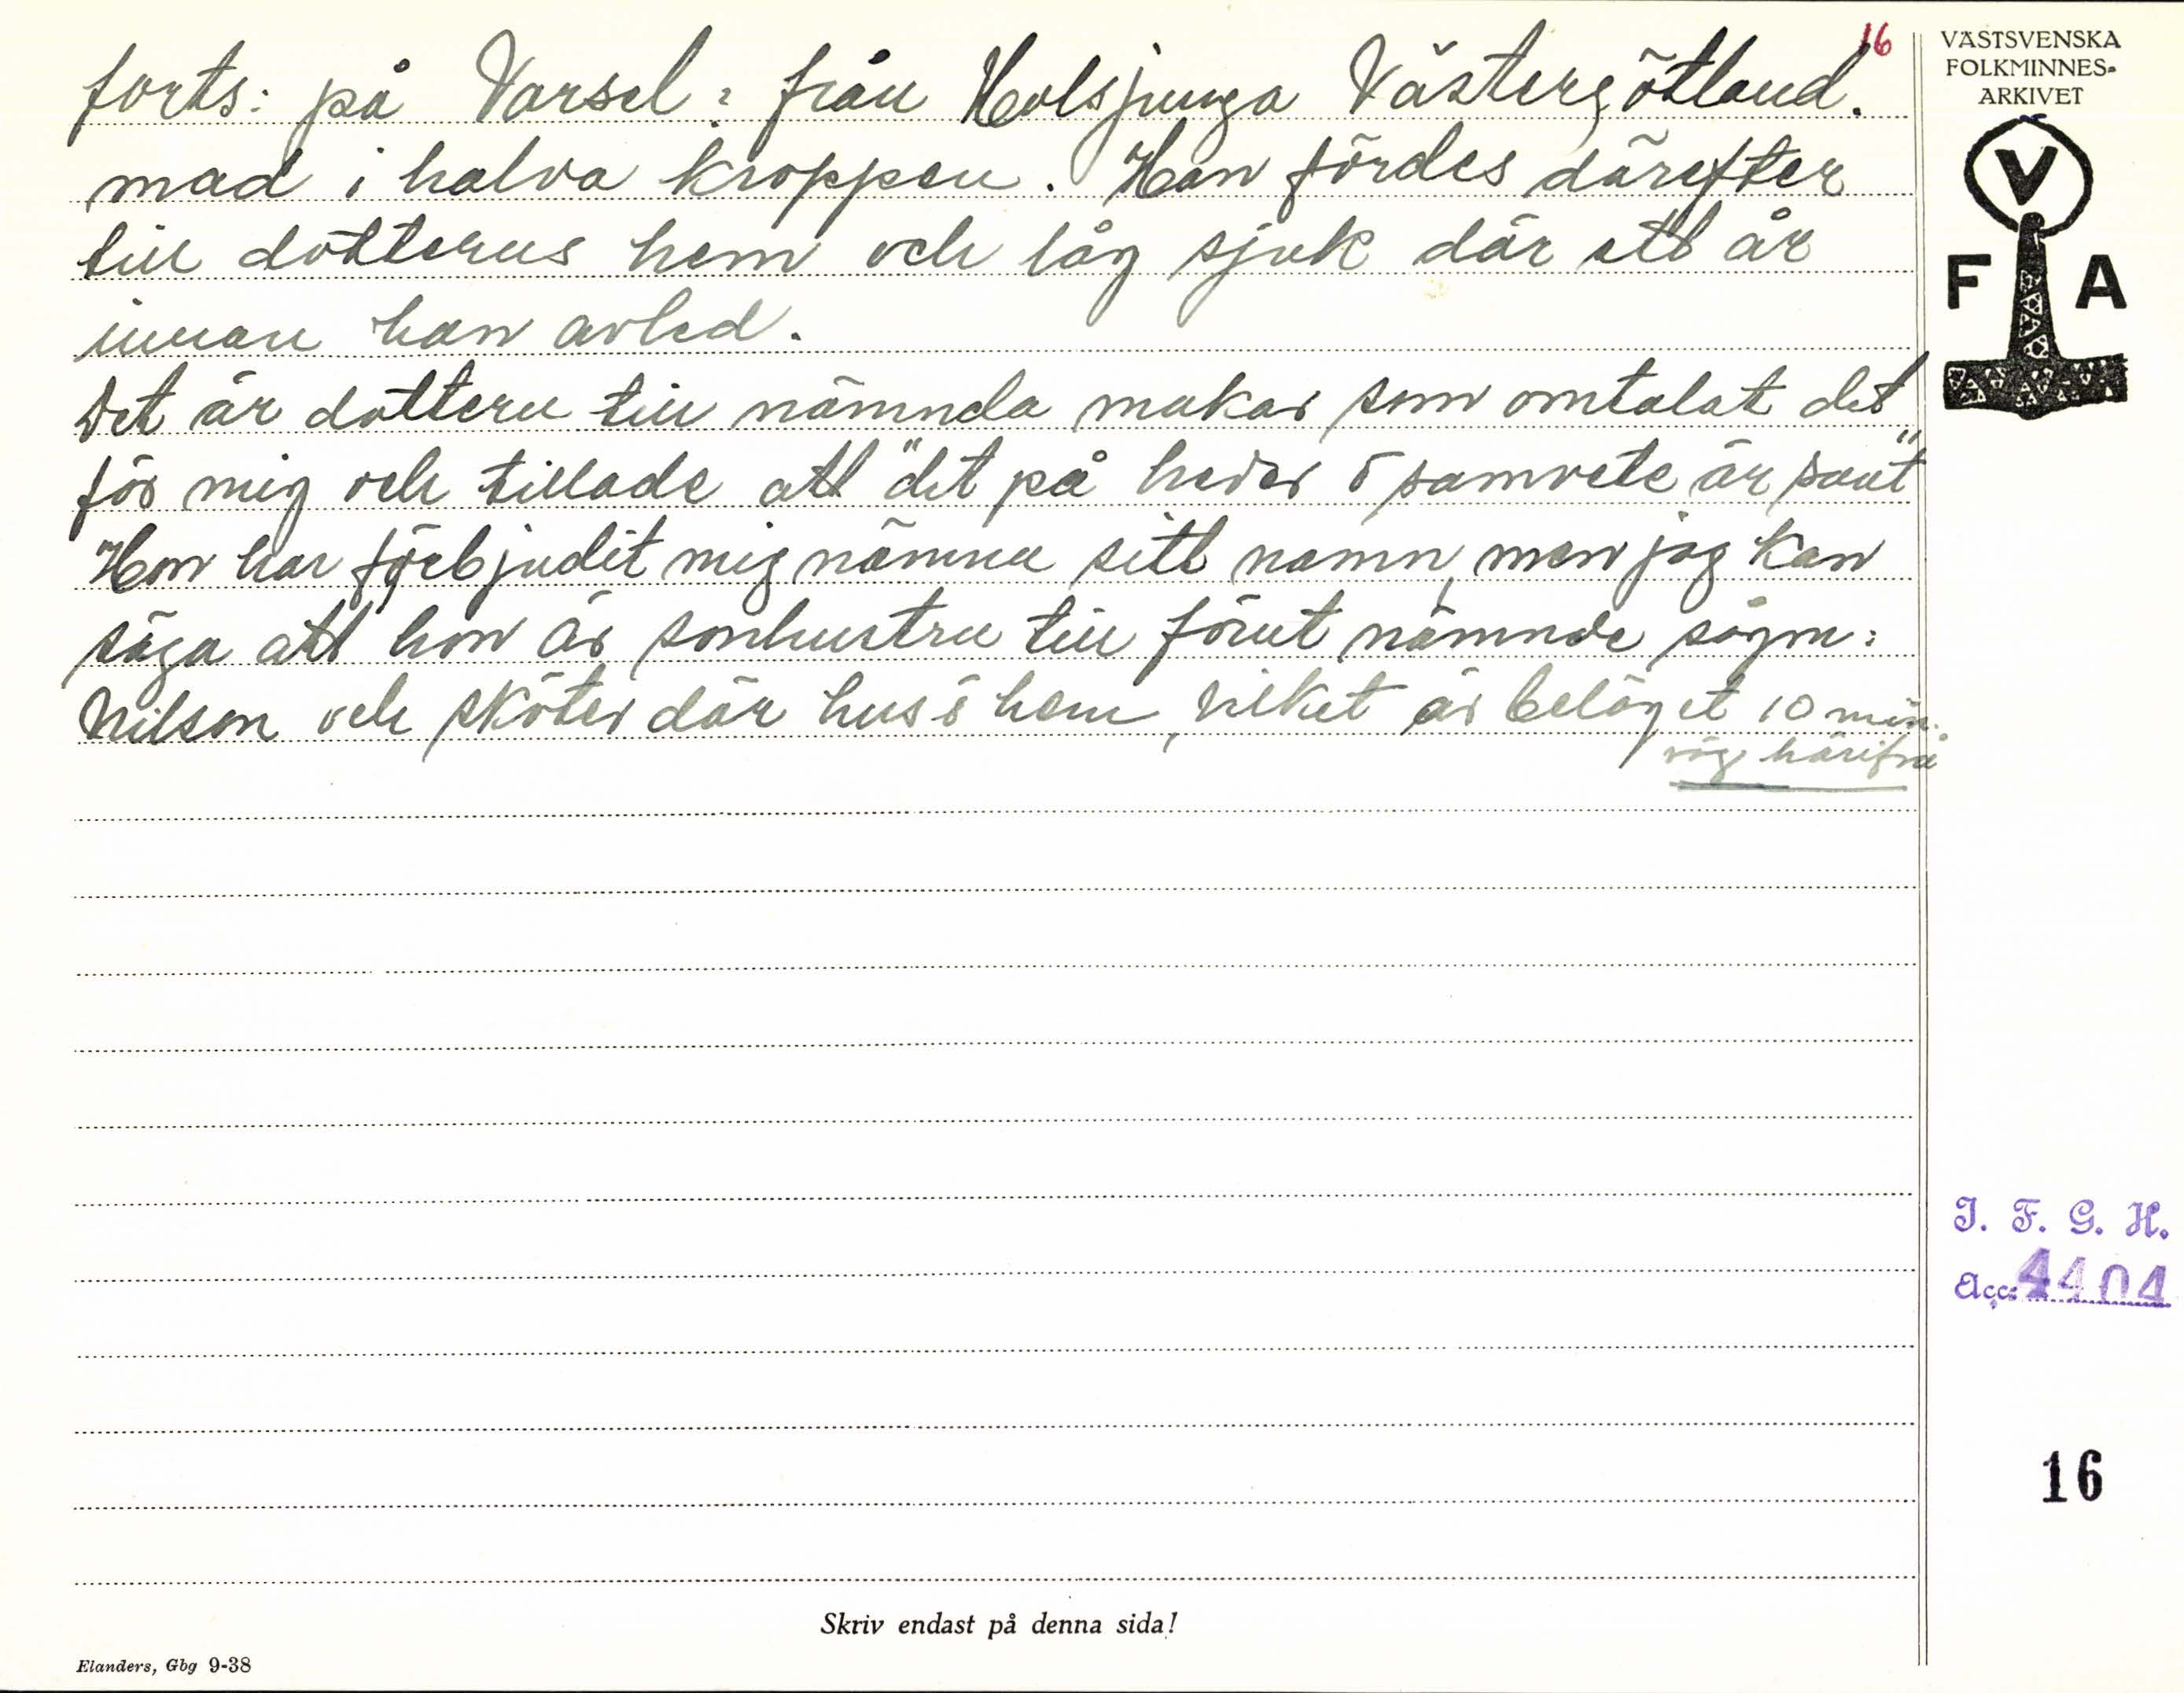 16
forts: på Varsel: från Holsjunga Västergötland.
mad i halva kroppen. Han fördes därefter
till dotterns hem och låg sjuk där ett år
innan han avled.
Det är dottern till nämnda makar som omtalat det
för mig och tillade att "det på heder o samvete är sant"
Hon har förbjudit mig nämna sitt namn, men jag kan
säga att hon är sonhustru till förut nämnde sågm:
Nilson och sköter där hus o hem, vilket är beläget 10 min.
väg härifrå
VÄSTSVENSKA
FOLKMINNES-
ARKIVET
V
F A
I. F. G. H.
Acc: 4404
16
Skriv endast på denna sida!
Elanders, Gbg 9-38